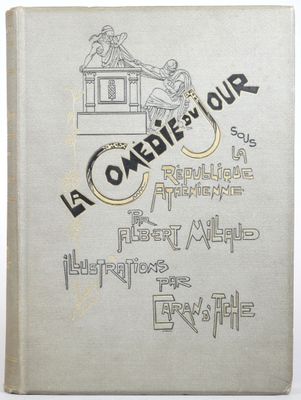 LA COMÉDIE DU JOUR
SOUS
LA
RÉPUBLIQUE
ATHÉNIENNE
PAR
ALBERT MILLAUD
ILLUSTRATIONS
PAR
CARAN D'ACHE